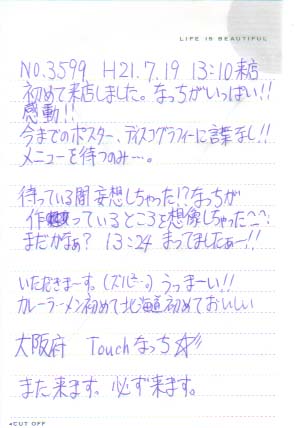 LIFE IS BEAUTIFUL
NO.3599 H21.7.19 13:10来店
初めて来店しました。なっちがいっぱい!!
感動!!
今までのポスター、ディスコグラフィーに言葉なし!!
メニューを待つのみ…。
待っている間妄想しちゃった!?なっちが
作っているところを想像しちゃった^^;
まだかなぁ? 13:24 まってましたぁー!!
いただきまーす。(ズルズ〜。) うっまーい!!
カレーラーメン初めて北海道初めておいしい
大阪府 Touchなっち☆彡
また来ます。必ず来ます。
◂CUT OFF